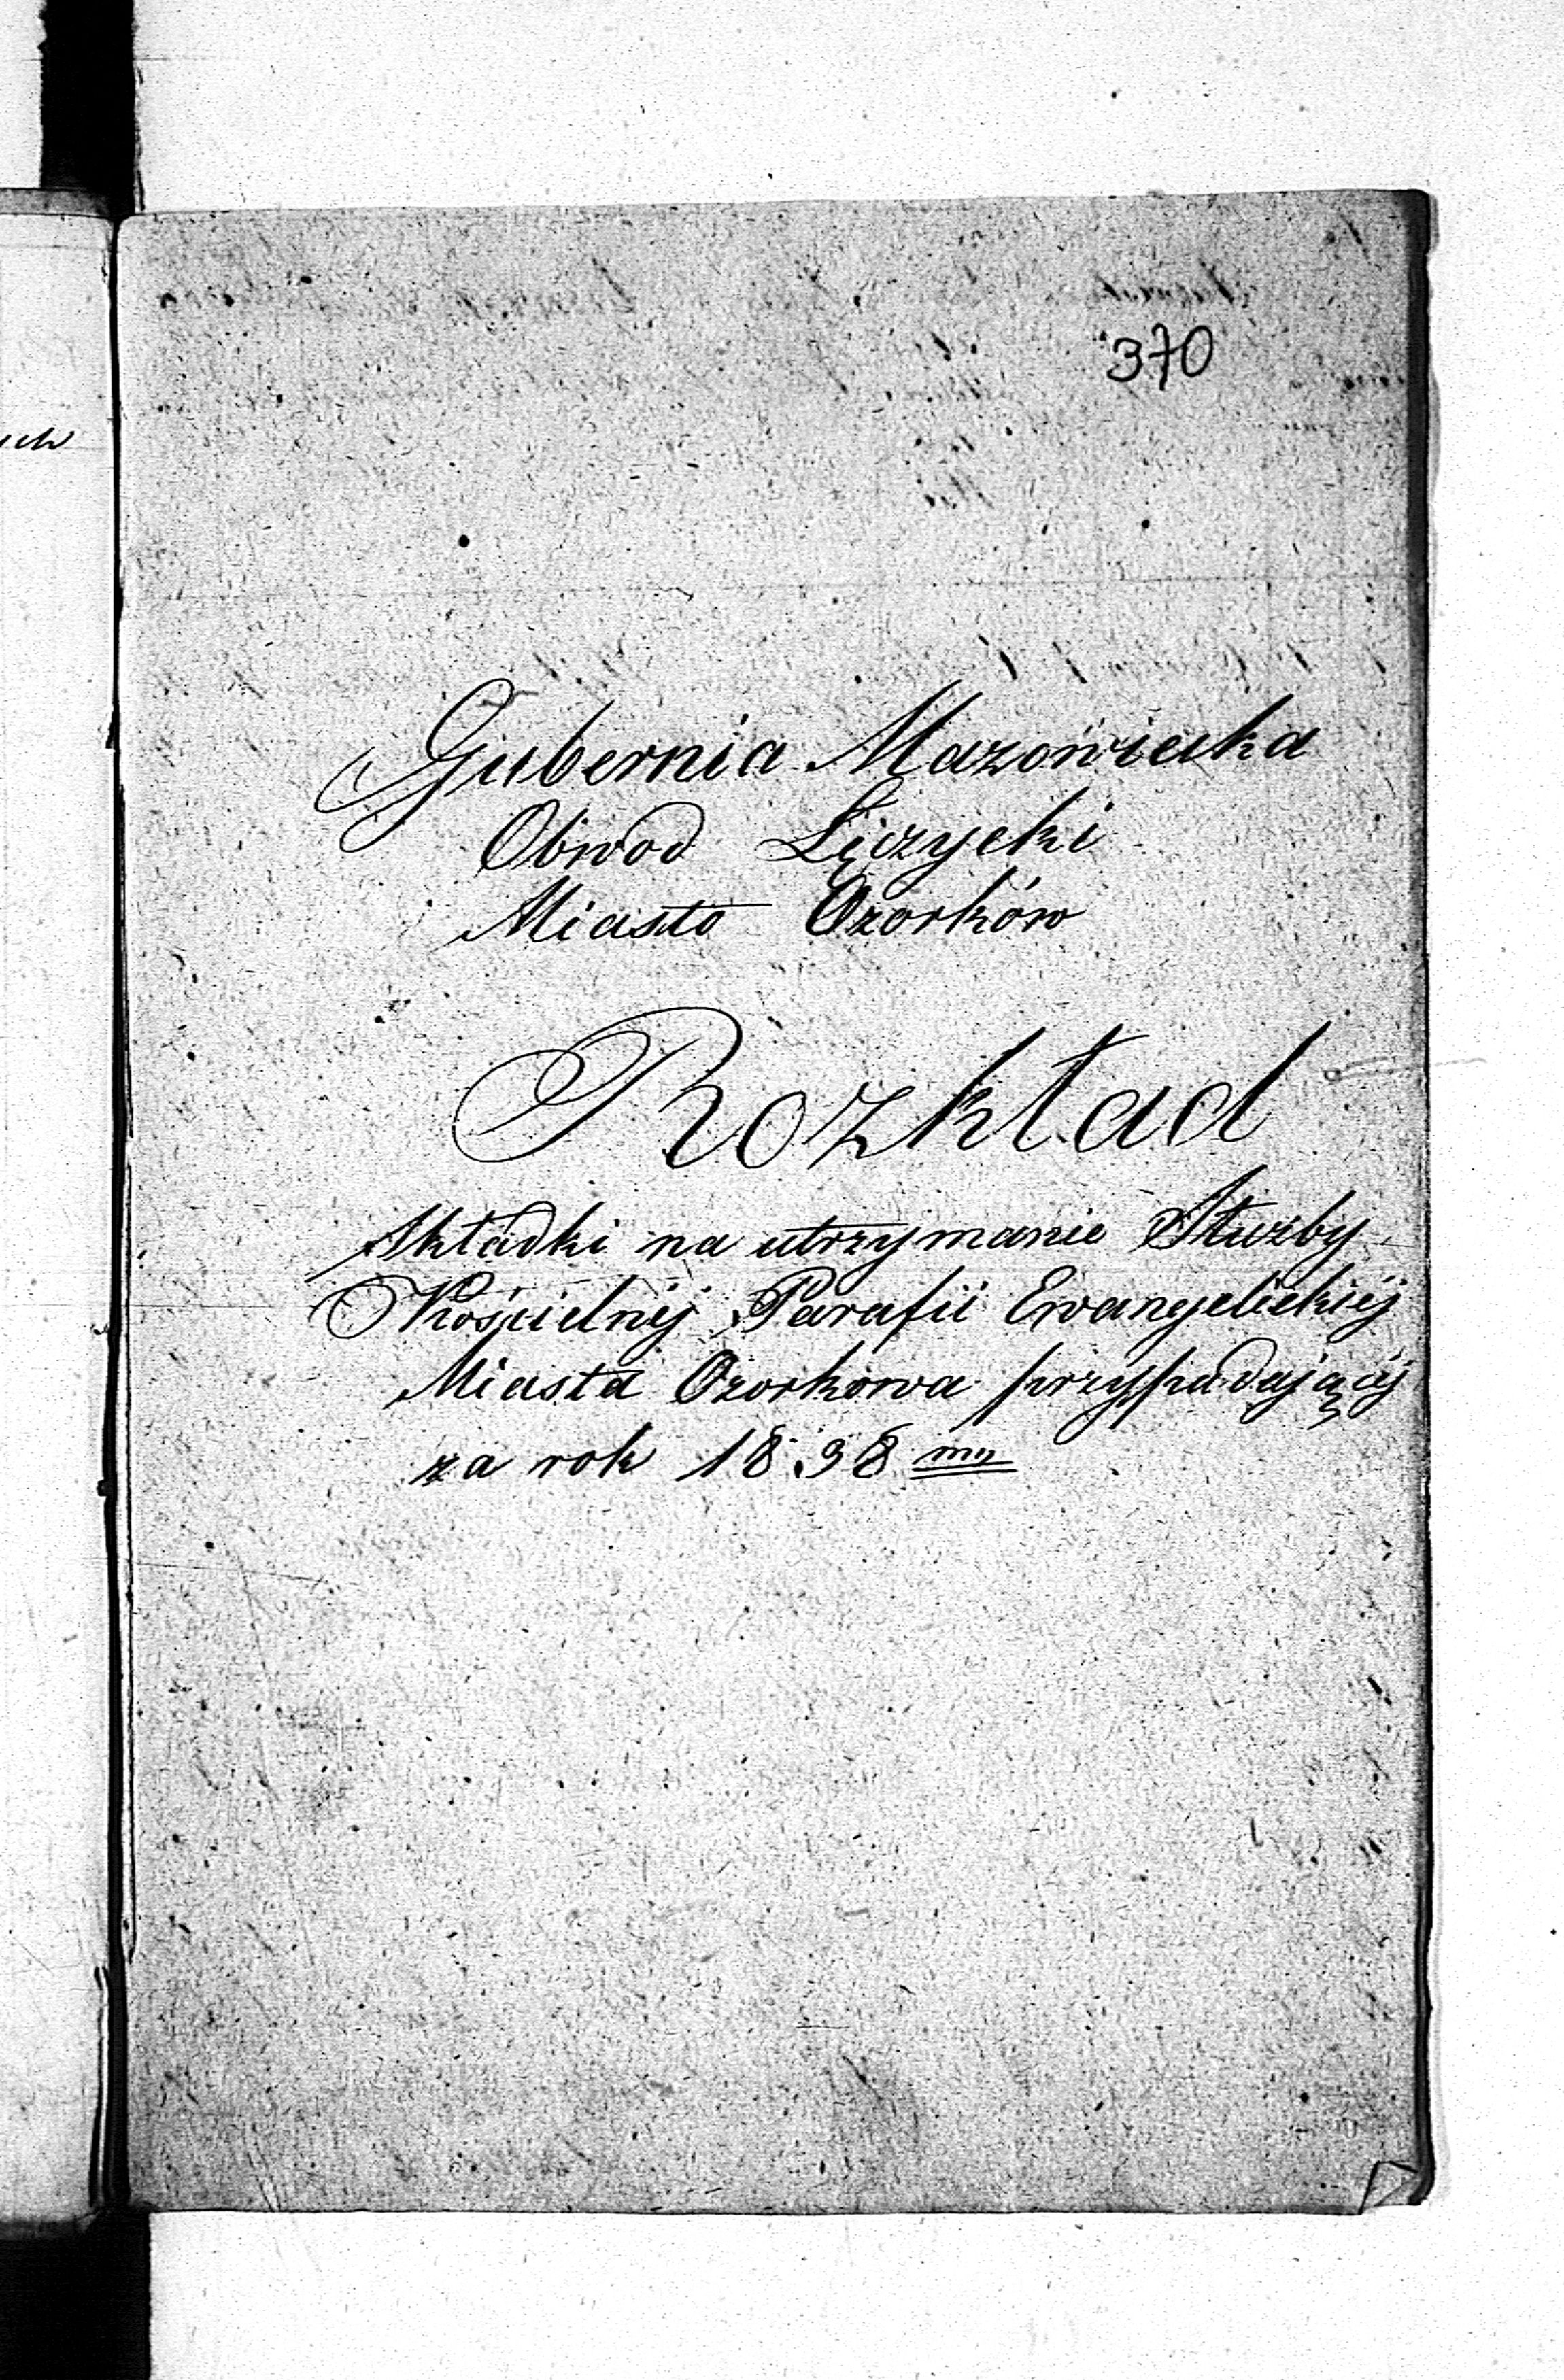 370
Gubernia Mazowiecka
Obwod Łęczycki
Miasto Ozorków
Rozkład
Składki na utrzymanie Służby
Kościelnéj Parafii Ewangelickiéj
Miasta Ozorkowa przypadającéj
za rok 1838 my